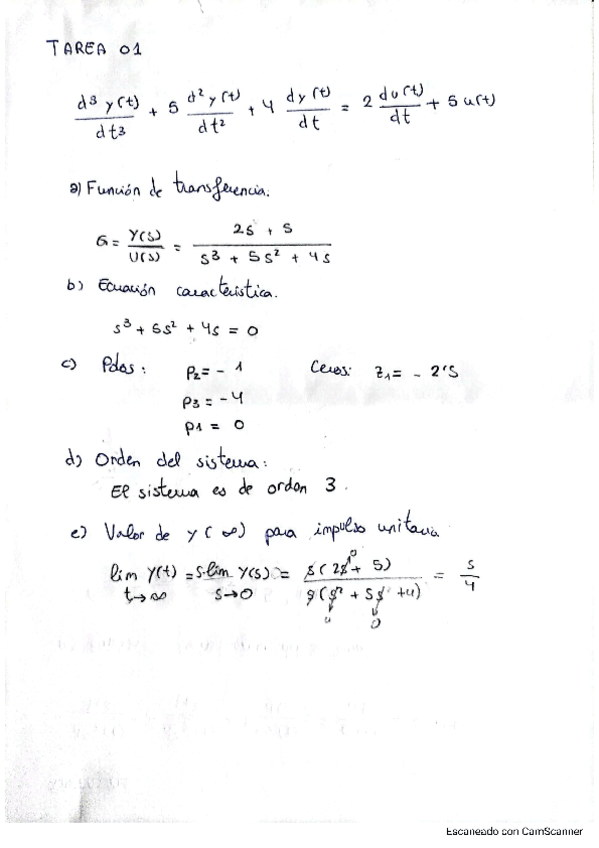 TAREA 01
d3 y(t)/dt3 + 5 d2 y(t)/dt2 + 4 dy(t)/dt = 2 du(t)/dt + 5 u(t)
a) Función de transferencia.
G = Y(s)/U(s) = 2s + 5 / s3 + 5s2 + 4s
b) Ecuación característica.
s3 + 5s2 + 4s = 0
c) Polos: P2 = - 1 Ceros: z1 = - 2'5
P3 = - 4
P1 = 0
d) Orden del sistema:
El sistema es de orden 3.
e) Valor de y(∞) para impulso unitario
lim t→∞ y(t) = s·lim s→0 Y(s) = s(2s + 5) / s(s2 + 5s + 4) = 5/4
Escaneado con CamScanner